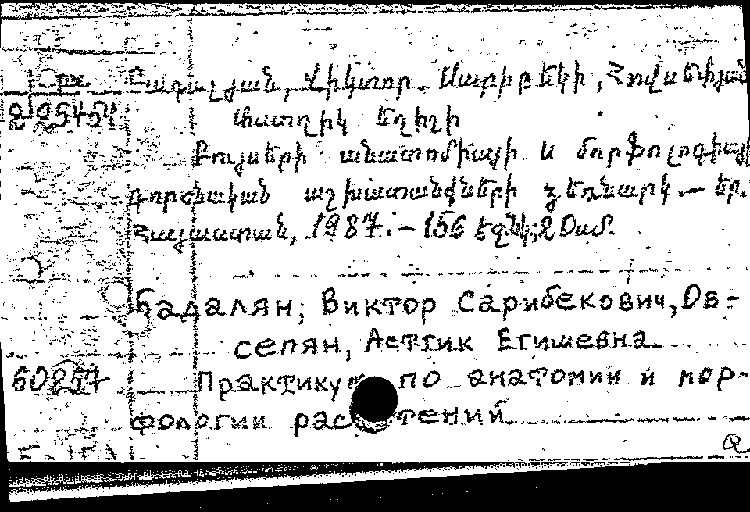 Բադալյան, Վիկտոր Սարիբեկի, Հովսեփյան
225454 Աստղիկ Եղիշի
Բույսերի անատոմիայի և մորֆոլոգիայի
գործնական աշխատանքների ձեռնարկ.— Եր.
Հայաստան, 1987.—156 էջ
Бадалян, Виктор Сарибекович, Ов-
сепян, Астгик Егишевна
60257 Практикум по анатомии и мор-
фологии растений